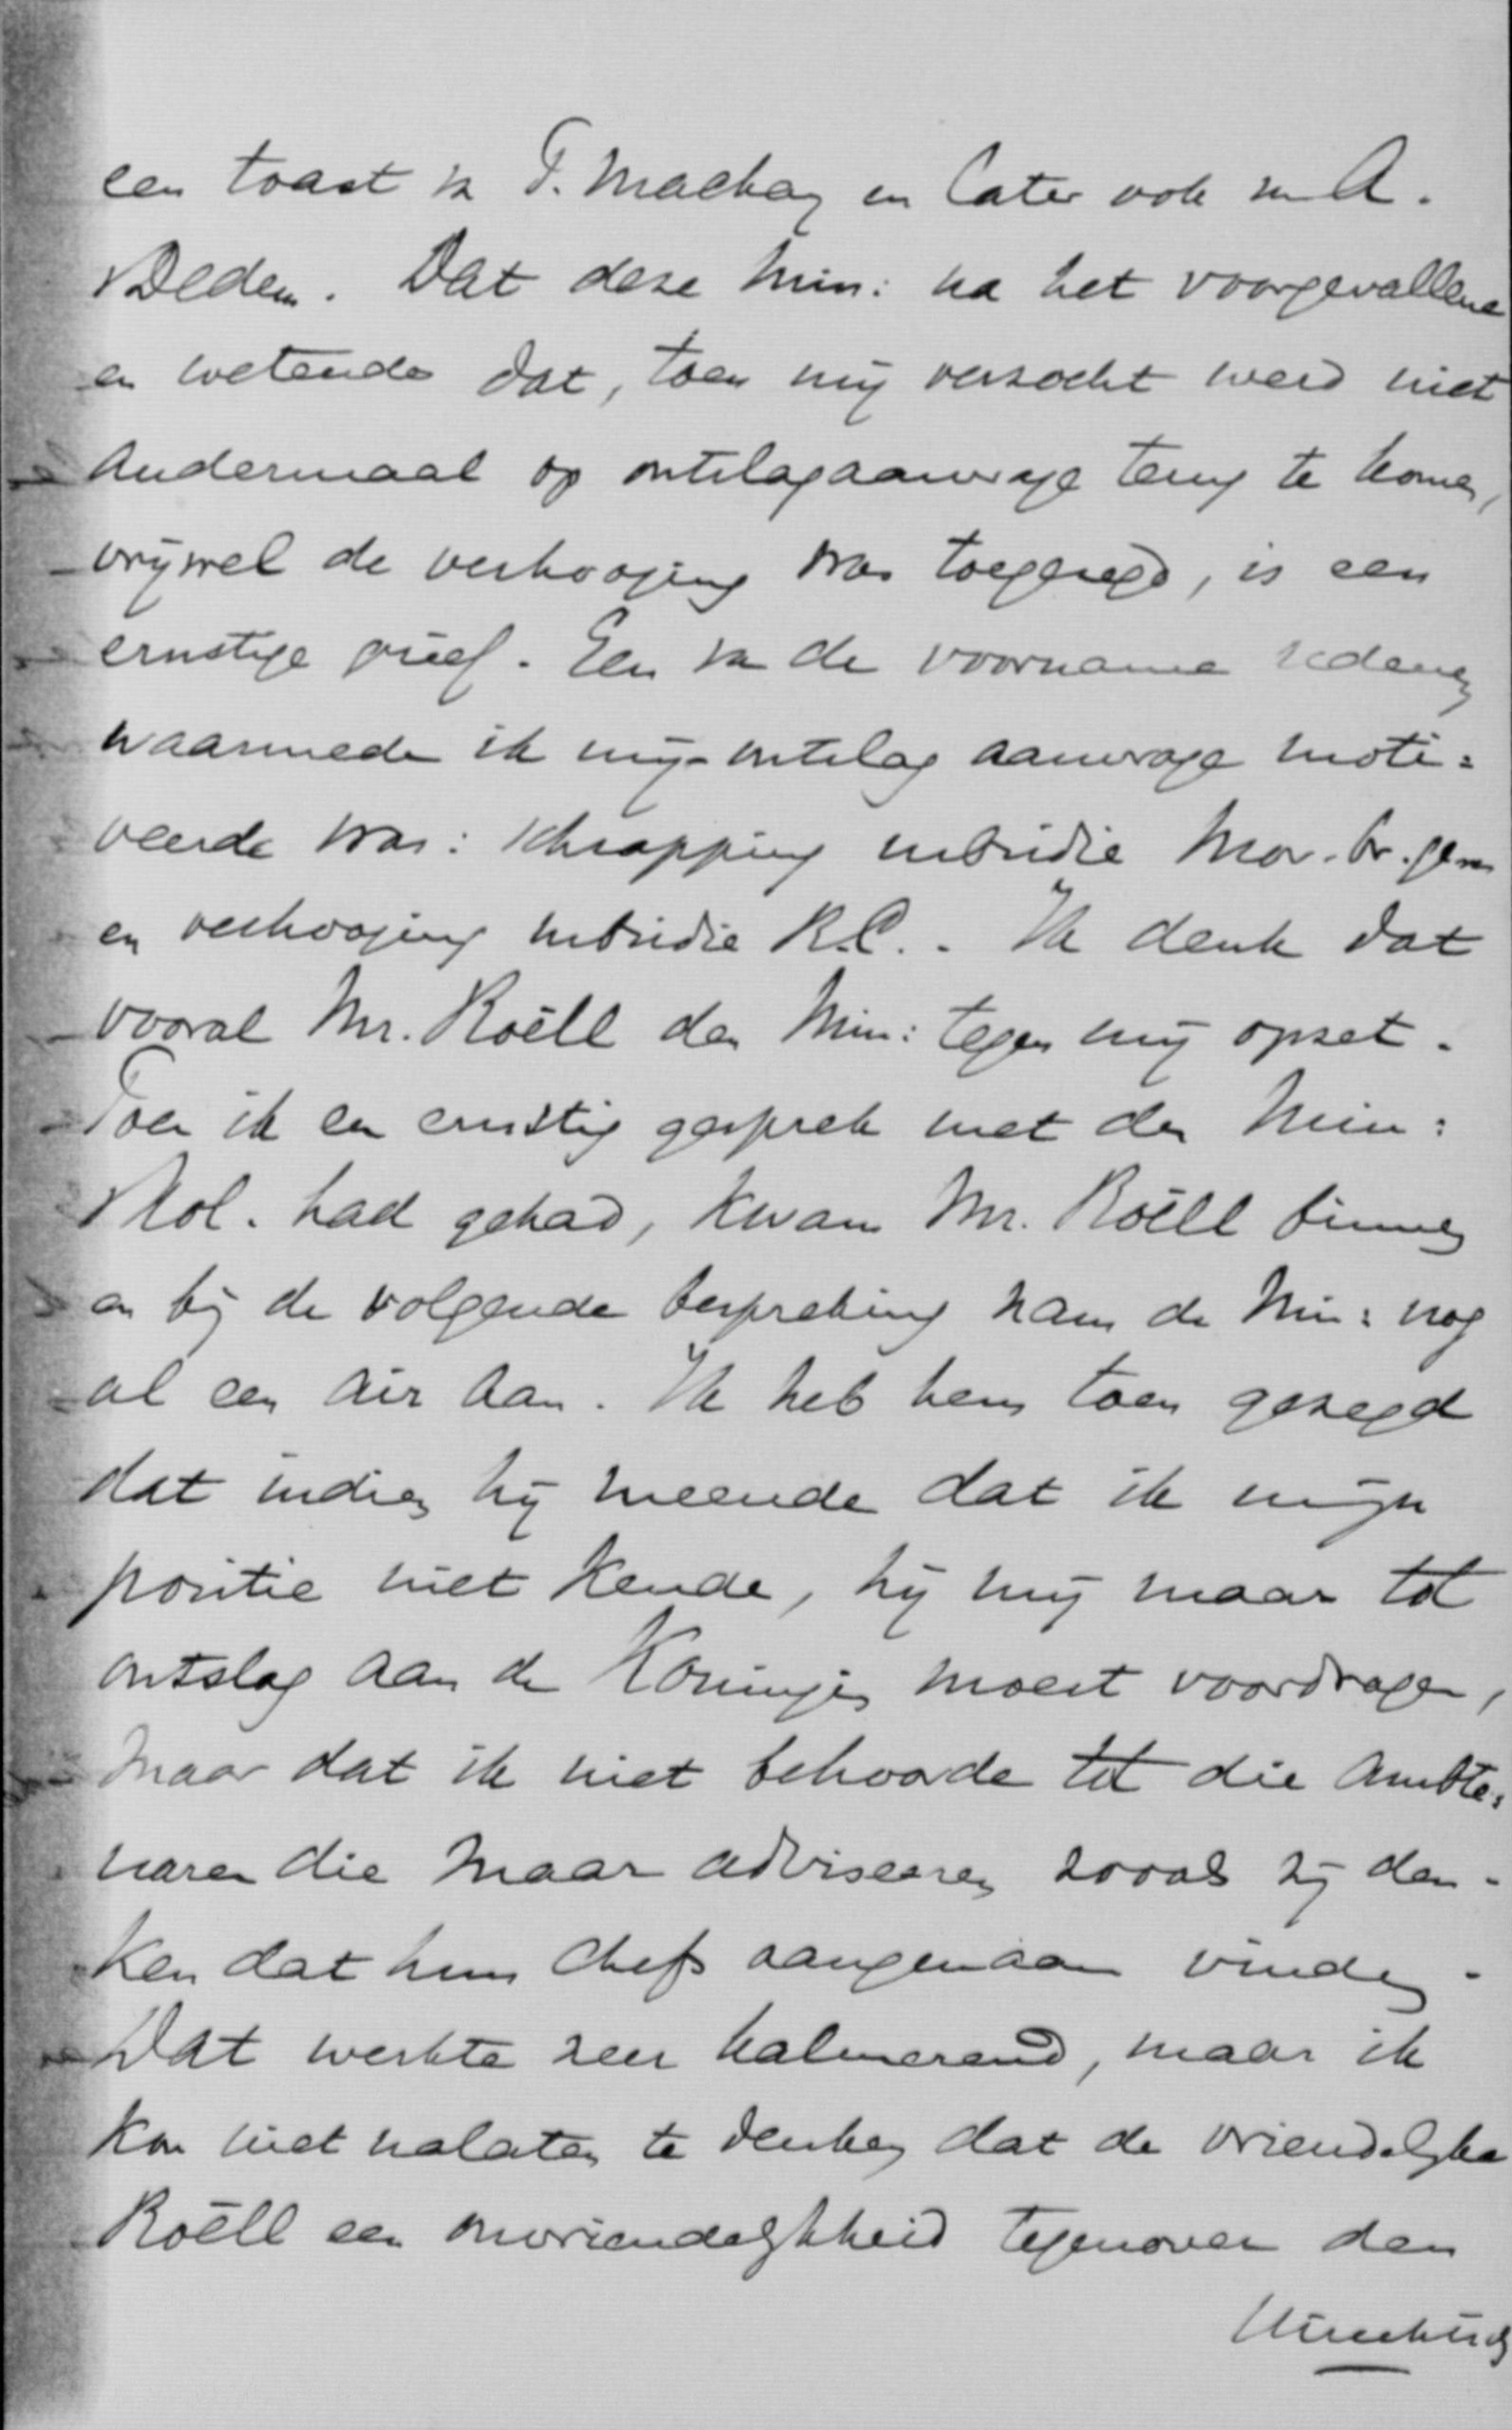 een toast v T. Mackay en later ook v A.
v Dedem. Dat deze Min: na het voorgevallene
en wetende dat, toen mij verzocht werd niet
andermaal op ontslagaanvrage terug te komen,
vrijwel de verhooging was toegezegd, is een
ernstige grief. Een van de voorname redenen
waarmede ik mijn ontslag aanvrage moti=
veerde was: schrapping subsidie Mor. br. gem
en verhooging subsidie R.C. . Ik denk dat
vooral Mr. Roëll den Min: tegen mij opzet.
Toen ik een ernstig gesprek met den Min:
v Kol. had gehad, kwam Mr. Roëll binnen
en bij de volgende bespreking nam de Min: nog
al een air aan. Ik heb hem toen gezegd
dat indien hij meende dat ik mijn
positie niet kende, hij mij maar tot
ontslag aan de Koningin moest voordragen,
maar dat ik niet behoorde tot die ambte=
naren die maar adviseeren zooals zij den-
ken dat hun chefs aangenaam vinden.
Dat werkte zeer kalmeerend, maar ik
kon niet nalaten te denken dat de vriendelijke
Roëll een onvriendelijkheid tegenover den